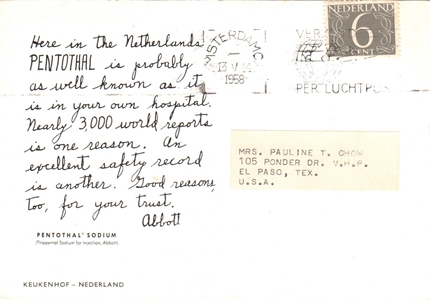 Here in the Netherlands
PENTOTHAL is probably
as well known as it
is in your own hospital.
Nearly 3,000 world reports
is one reason. An
excellent safety record
is another. Good reasons,
too, for your trust.
Abbott
PENTOTHAL® SODIUM
(Thiopental Sodium for Injection, Abbott)
KEUKENHOF – NEDERLAND
AMSTERDAM
1958
VER
PER LUCHTPOST
NEDERLAND
6
CENT
MRS. PAULINE T. CHOW
105 PONDER DR. V.H.P.
EL PASO, TEX.
U.S.A.